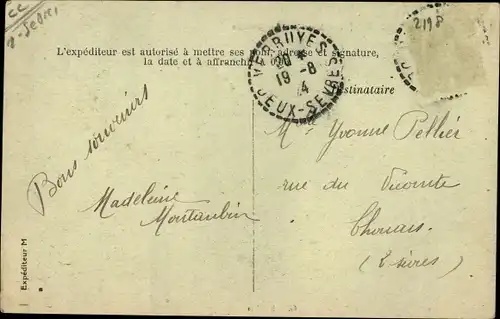 2198
L'expéditeur est autorisé à mettre ses nom, adresse et signature,
la date et à affranchir à
VERRUYES
20 *
19 -8
4
DEUX-SEVRES
Destinataire
Bons souvenirs
Madeleine
Montaubin
Mlle Yvonne Pellier
rue du Vicomte
Thouars
(2 sèvres)
Expéditeur M